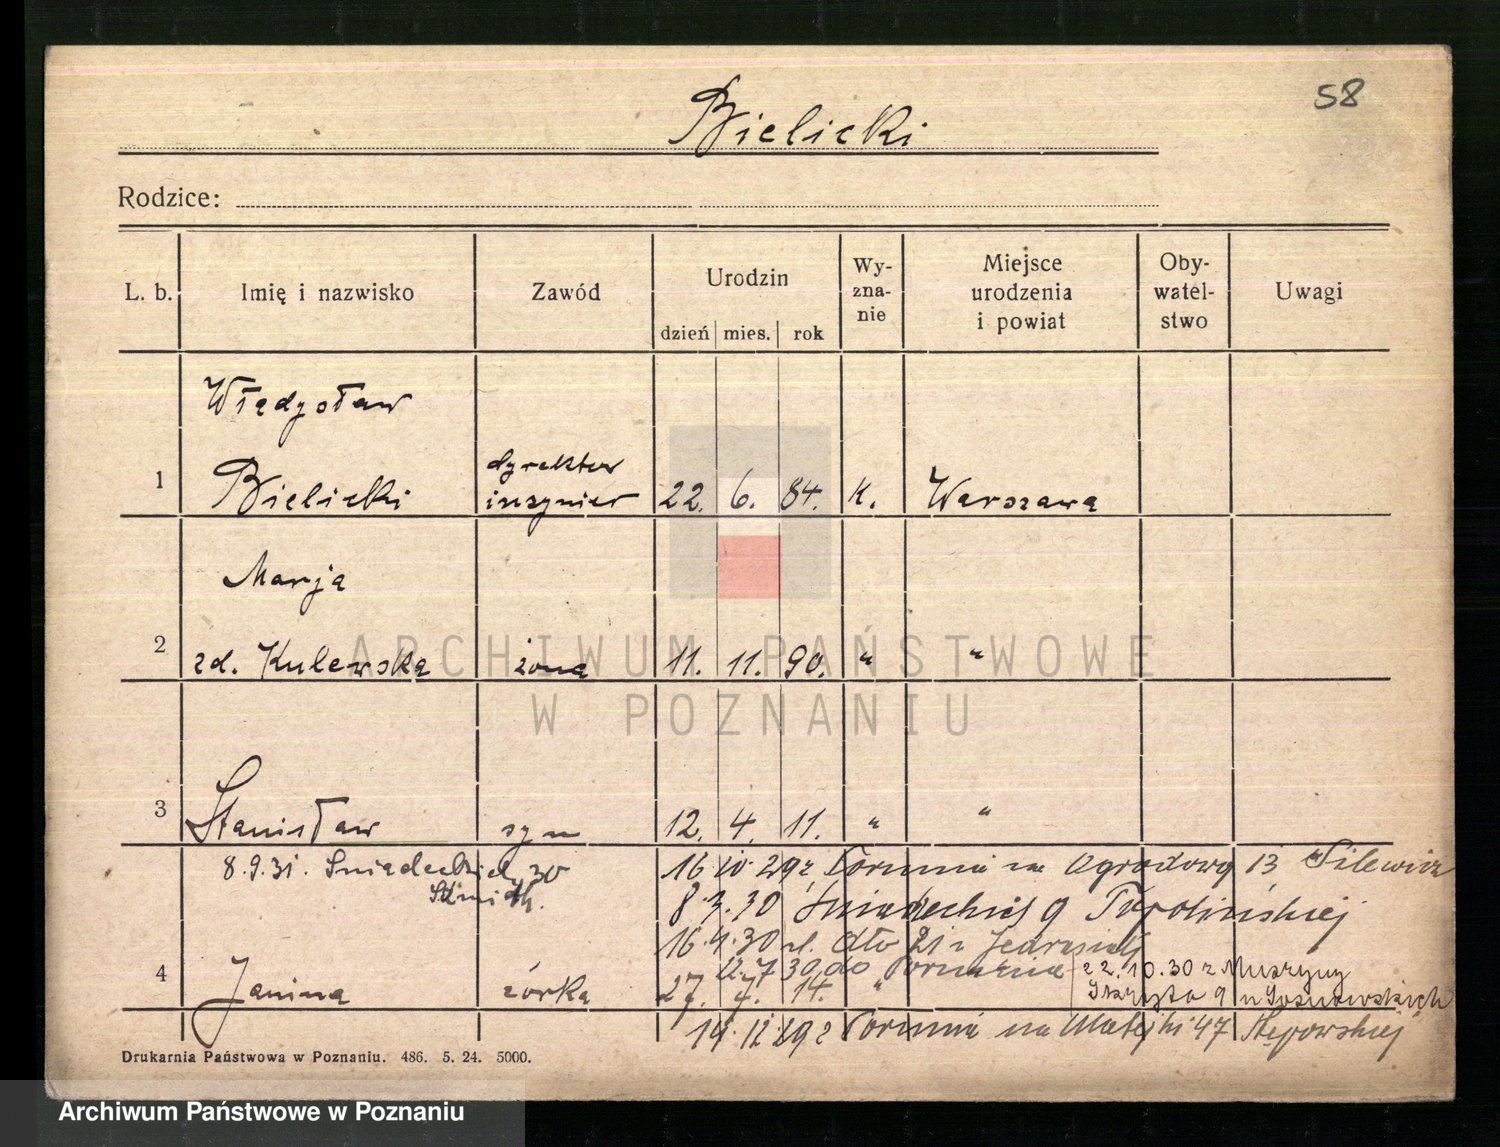 58
Bielicki
Rodzice:
L. b. Imię i nazwisko Zawód Urodzin dzień mies. rok Wy-zna-nie Miejsce urodzenia i powiat Oby-watel-stwo Uwagi
Władysław
dyrektor
1 Bielicki inżynier 22. 6. 84. K. Warszawa
Marja
2 zd. Kulewska żona 11. 11. 90. " "
3 Stanisław syn 12. 4. 11. " "
8.9.31. Śniadeckich 30
16 29 z Torunia na Ogrodową 13
8.3.30 Śniadeckich 9
16.4.30 21
12.7.30 do
22.10.30 z Muszyny
4 Janina córka 27. 7. 14. "
9 u Sosnowskich
14.12.29 z Torunia na Matejki 47
Drukarnia Państwowa w Poznaniu. 486. 5. 24. 5000.
ARCHIWUM PAŃSTWOWE
W POZNANIU
Archiwum Państwowe w Poznaniu